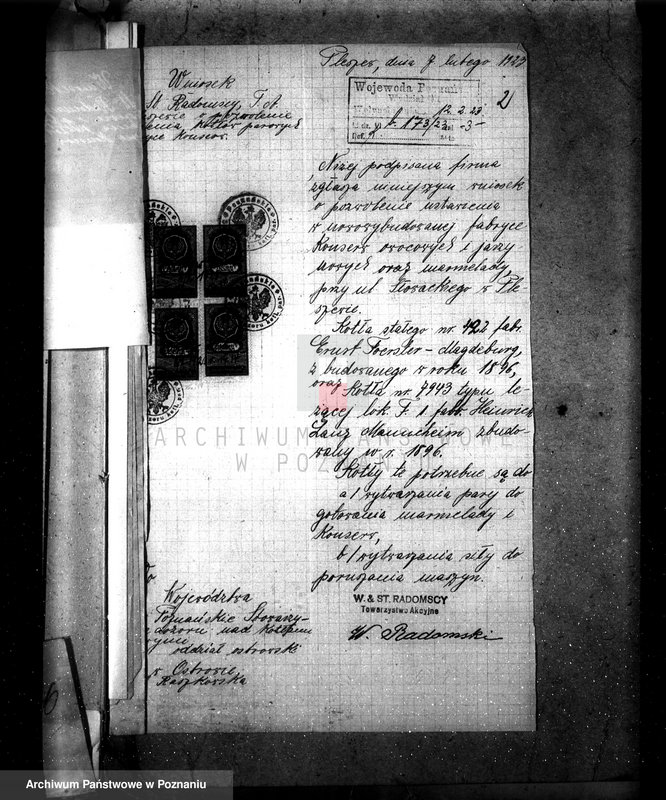 Pleszew, dnia 7 lutego 1923
Wniosek
St. Radomscy, T. A.
o pozwolenie
Kotłów parowych
Konserw.
Wojewoda
12. 2. 23
173/23
2
Niżej podpisana firma
zgłasza niniejszym wniosek
o pozwolenie ustawienia
w nowowybudowanej fabryce
Konserw owocowych i jarzy-
nowych oraz marmelady,
przy ul. Słowackiego w Ple-
szewie.
Kotła stałego nr. 422 fabr.
Ernst Foerster - Magdeburg,
z budowanego w roku 1896,
oraz Kotła nr. 4943 typu le-
żącej lok. F. 1 fabr. Heinrich
Lanz Mannheim zbudo-
wany w r. 1896.
Kotły te potrzebne są do
a/ wytwarzania pary do
gotowania marmelady i
Konserw,
b/ wytwarzania siły do
poruszania maszyn.
W. & ST. RADOMSCY
Towarzystwo Akcyjne
W. Radomski
Województwa
Poznańskie Stowarzy-
dozoru nad Kotłami
oddział ostrowski
w Ostrowie
Raszkowska
ARCHIWUM PAŃSTWOWE
W POZNANIU
Archiwum Państwowe w Poznaniu